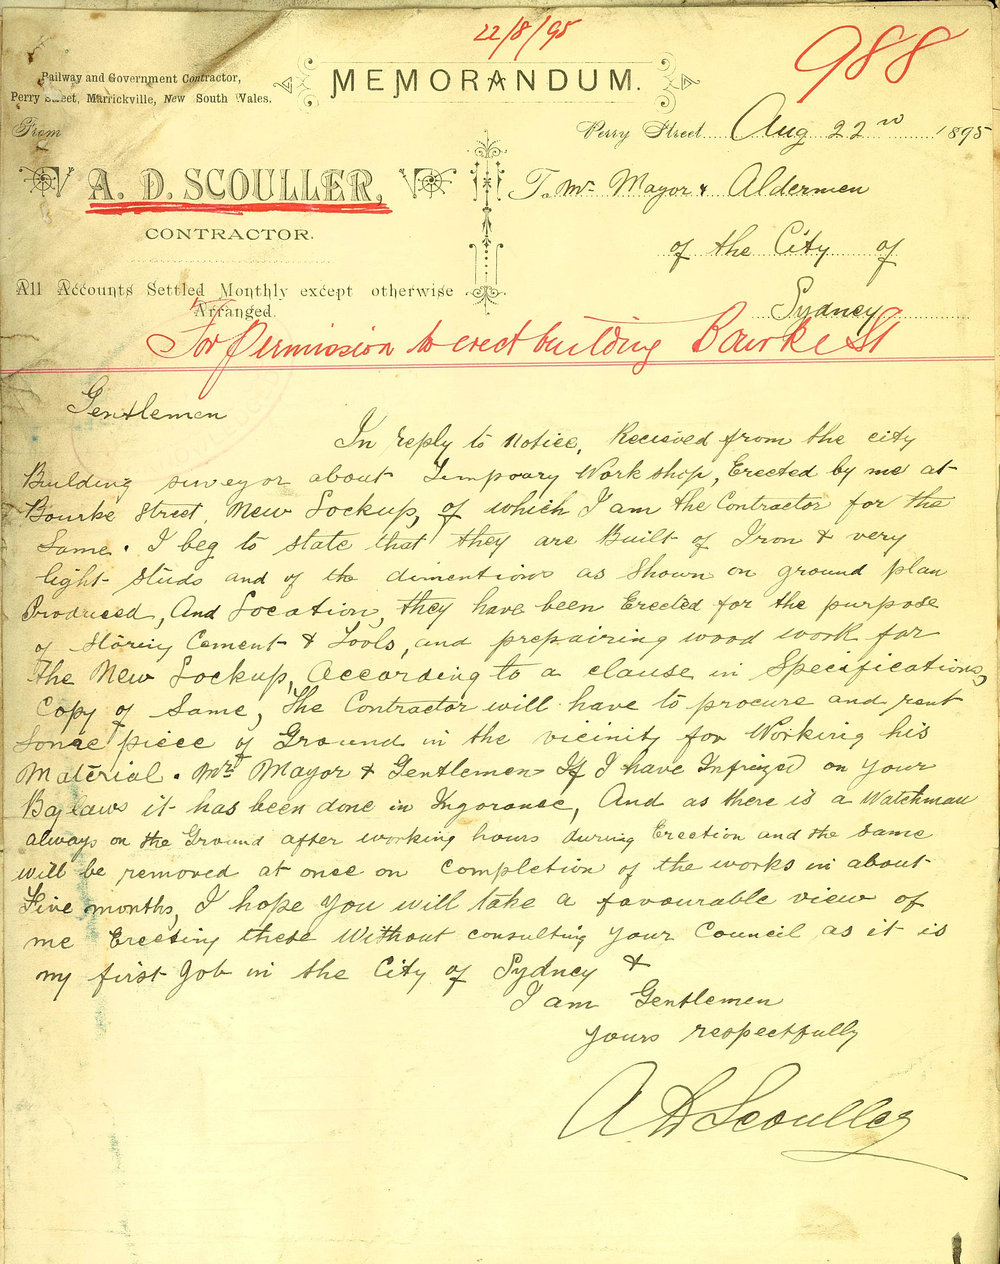 22/8/95
988
Railway and Government Contractor,
Perry Street, Marrickville, New South Wales.
MEMORANDUM.
From
Perry Street Aug 22nd 1895
A. D. SCOULLER,
CONTRACTOR.
To Mr Mayor & Aldermen
of the City of
Sydney
All Accounts Settled Monthly except otherwise
Arranged.
For Permission to erect building Bourke St
Gentlemen
In reply to Notice, Recieved from the city
Building surveyor about Tempoary Work shop, Erected by me at
Bourke Street, New Lockup, of which I am the Contractor for the
Same. I beg to state that they are Built of Iron & very
light studs and of the dimentions as shown on ground plan
Produced, And Location, they have been Erected for the purpose
of Storing Cement & Tools, and prepairing wood work for
the New Lockup, According to a clause in Specifications,
Copy of Same, The Contractor will have to procure and rent
Some piece of Ground in the vicinity for Working his
Material. Mr Mayor & Gentlemen If I have Infringed on your
Baylaws it has been done in Ingoranse, And as there is a Watchman
always on the Ground after working hours during Erection and the same
will be removed at once on completion of the works in about
Five months, I hope you will take a favourable view of
me Erecting these Without consulting your Council as it is
my first Job in the City of Sydney &
I am Gentlemen
yours respectfully
A D Scouller